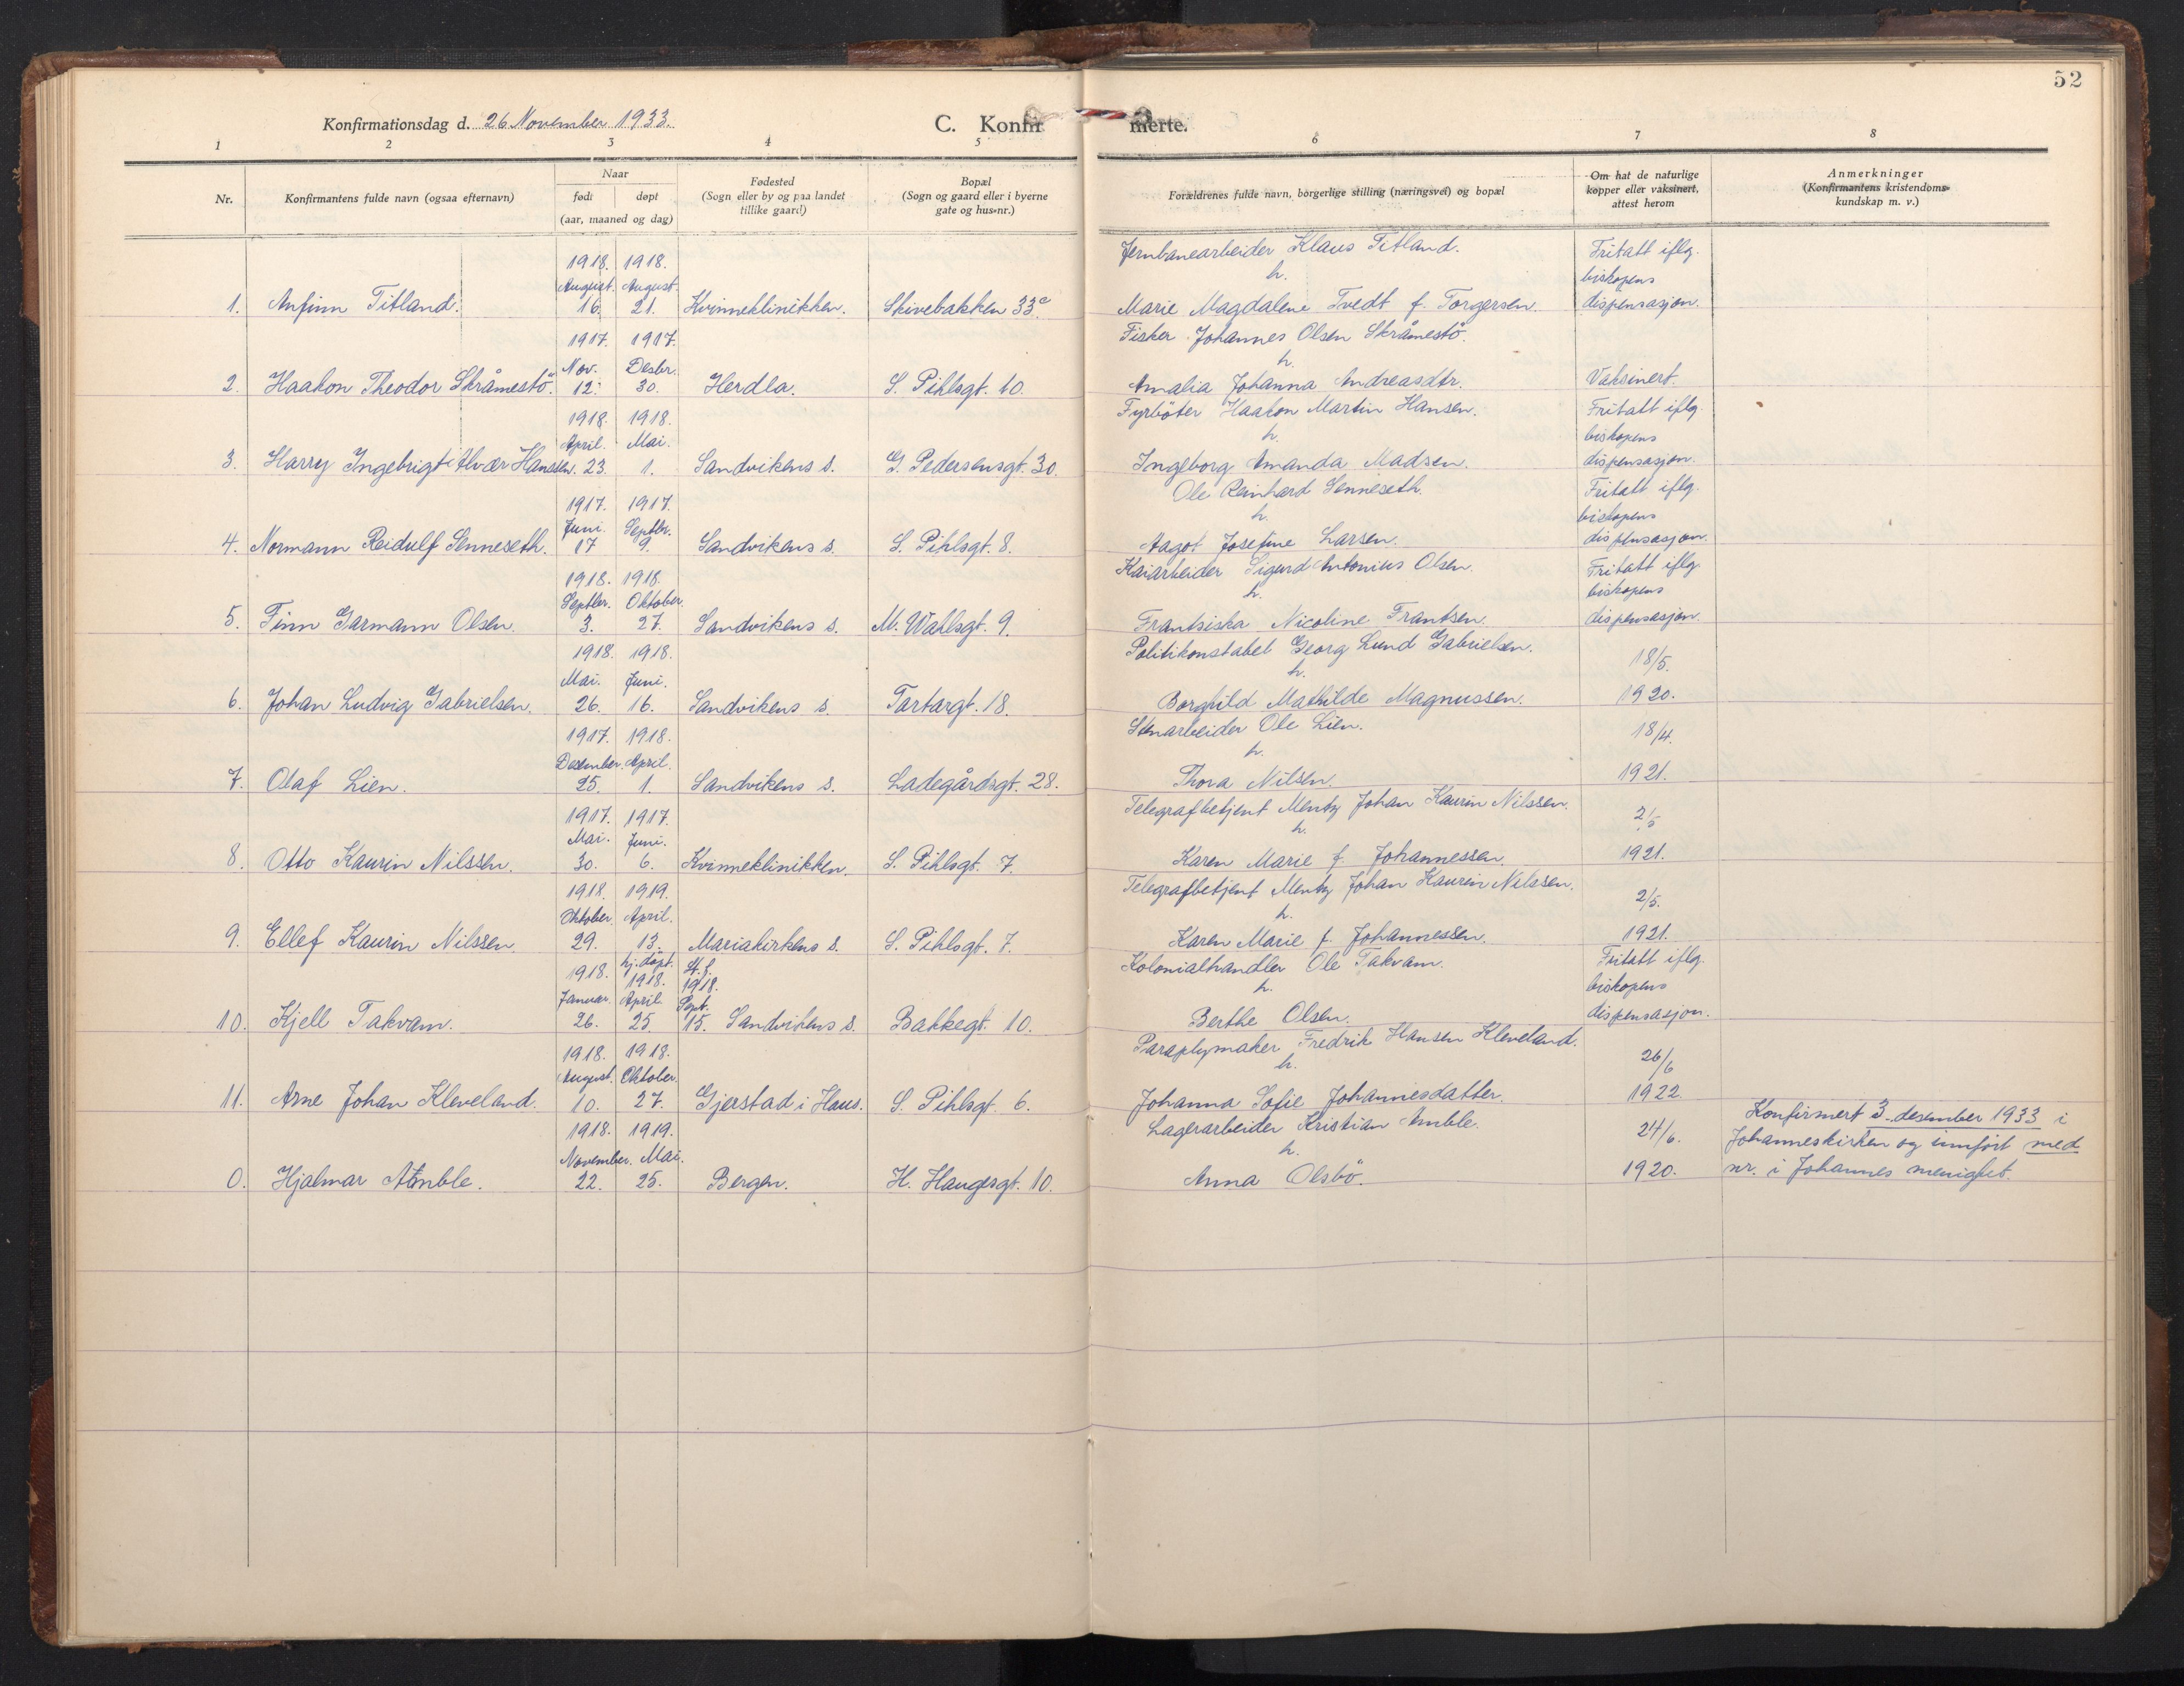 52
Konfirmationsdag d. 26 November 1933.
C. Konfirmerte.
1 2 3 4 5 6 7 8
Nr.
Konfirmantens fulde navn (ogsaa efternavn)
Naar
født døpt
(aar, maaned og dag)
Fødested
(Sogn eller by og paa landet
tillike gaard)
Bopæl
(Sogn og gaard eller i byerne
gate og hus-nr.)
Forældrenes fulde navn, borgerlige stilling (næringsvei) og bopæl
Om hat de naturlige
kopper eller vaksinert,
attest herom
Anmerkninger
(Konfirmantens kristendoms-
kundskap m. v.)
1918. 1918. Jernbanearbeider Klaus Titland. Fritatt iflg.
August. August. h. biskopens
1. Anfinn Titland. 16. 21. Kvinneklinikken. Skivebakken 33c Marie Magdalene Tvedt f. Torgersen. dispensasjon.
1917. 1917. Fisker Johannes Olsen Skråmestö.
Nov. Desbr. h.
2. Haakon Theodor Skråmestö. 12. 30. Herdla. S. Pihlsgt. 10. Amalia Johanna Andreasdtr. Vaksinert.
1918. 1918. Fyrböter Haakon Martin Hansen. Fritatt iflg.
April. Mai. h. biskopens
3. Harry Ingebrigt Alvær Hanssen. 23. 1. Sandvikens s. G. Pedersensgt. 30. Ingeborg Amanda Madsen. dispensasjon.
1917. 1917. Ole Reinhard Senneseth. Fritatt iflg.
Juni. Septbr. h. biskopens
4. Normann Reidulf Senneseth. 17 9. Sandvikens s. S. Pihlsgt. 8. Aagot Josefine Larsen. dispensasjon.
1918. 1918. Kaiarbeider Sigurd Antonius Olsen. Fritatt iflg.
Septbr. Oktober. h. biskopens
5. Finn Garmann Olsen. 3. 27. Sandvikens s. M. Wallsgt. 9. Frantsiska Nicoline Frantsen. dispensasjon.
1918. 1918. Politikonstabel Georg Lund Gabrielsen. 18/5.
Mai. Juni. h.
6. Johan Ludvig Gabrielsen. 26. 16. Sandvikens s. Tartargt. 18. Borghild Mathilde Magnussen. 1920.
1917. 1918. Stenarbeider Ole Lien. 18/4.
Desember. April. h.
7. Olaf Lien. 25. 1. Sandvikens s. Ladegårdsgt. 28. Thora Nilsen. 1921.
1917. 1917. Telegrafbetjent Mentz Johan Kaurin Nilssen. 2/5
Mai. Juni. h.
8. Otto Kaurin Nilssen. 30. 6. Kvinneklinikken. S. Pihlsgt. 7. Karen Marie f. Johannessen. 1921.
1918. 1919. Telegrafbetjent Mentz Johan Kaurin Nilssen. 2/5.
Oktober. April. h.
9. Ellef Kaurin Nilssen. 29. 13. Mariakirkens s. S. Pihlsgt. 7. Karen Marie f. Johannessen. 1921.
1918. hj. døpt. 1918. St. f. 1918. Kolonialhandler Ole Takvam. Fritatt iflg.
Januar. April Sept. h. biskopens
10. Kjell Takvam. 26. 25. 15. Sandvikens s. Bakkegt. 10. Berthe Olsen. dispensasjon.
1918. 1918. Paraplymaker Fredrik Hansen Kleveland. 26/6
August. Oktober. h.
11. Arne Johan Kleveland. 10. 27. Gjerstad i Haus. S. Pihlsgt. 6. Johanna Sofie Johannesdatter. 1922.
1918. 1919. Lagerarbeider Kristian Amble. 24/6. Konfirmert 3. desember 1933 i
November. Mai. h. Johanneskirken og innført med
0. Hjalmar Amble. 22. 25. Bergen. H. Haugesgt. 10. Anna Olsbö. 1920. nr. i Johannes menighet.